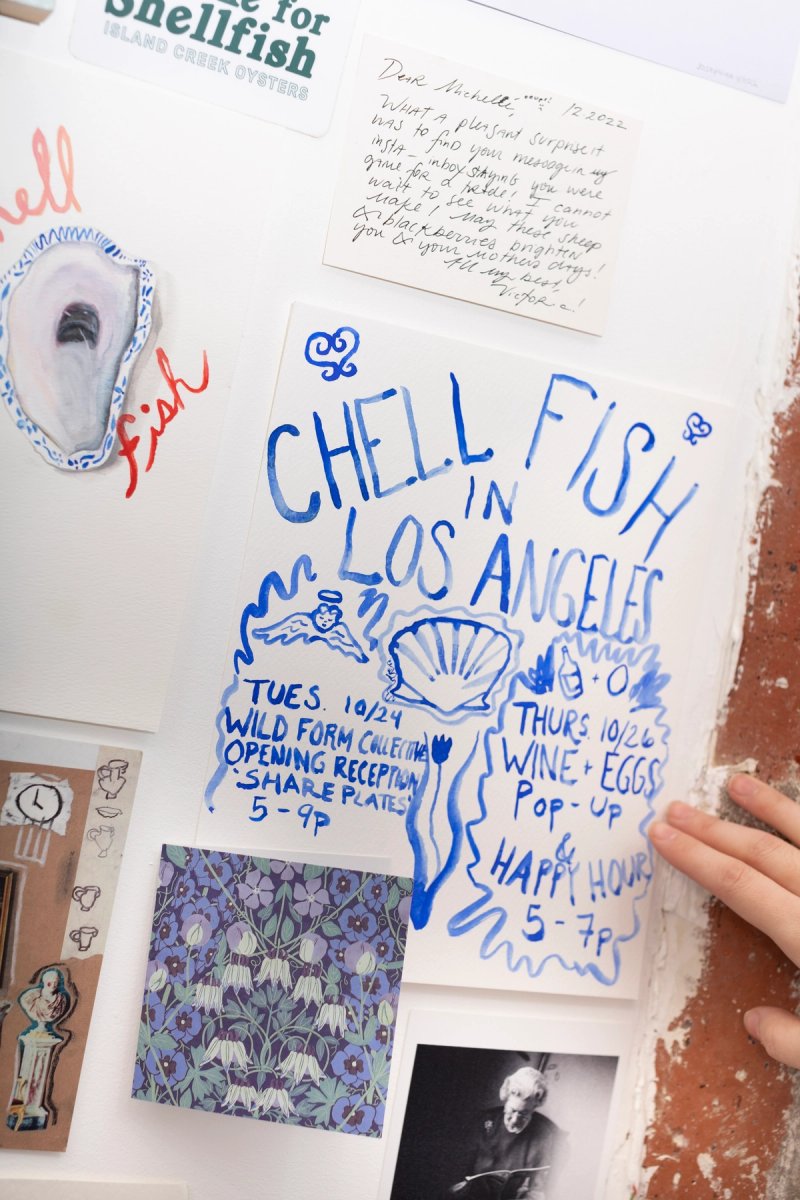 for
Shellfish
ISLAND CREEK OYSTERS
Dear Michelle, 12.2022
WHAT A pleasant surprise it
was to find your message in my
insta-inbox saying you were
game for a trade! I cannot
wait to see what you
make! May these sheep
& blackberries brighten
you & your mothers days!
All my best,
Victoria!
hell
fish
CHELL FISH
IN
LOS ANGELES
TUES. 10/24
WILD FORM COLLECTIVE
OPENING RECEPTION
"SHARE PLATES"
5-9p
+ O
THURS. 10/26
WINE + EGGS
POP-UP
&
HAPPY HOUR
5-7p